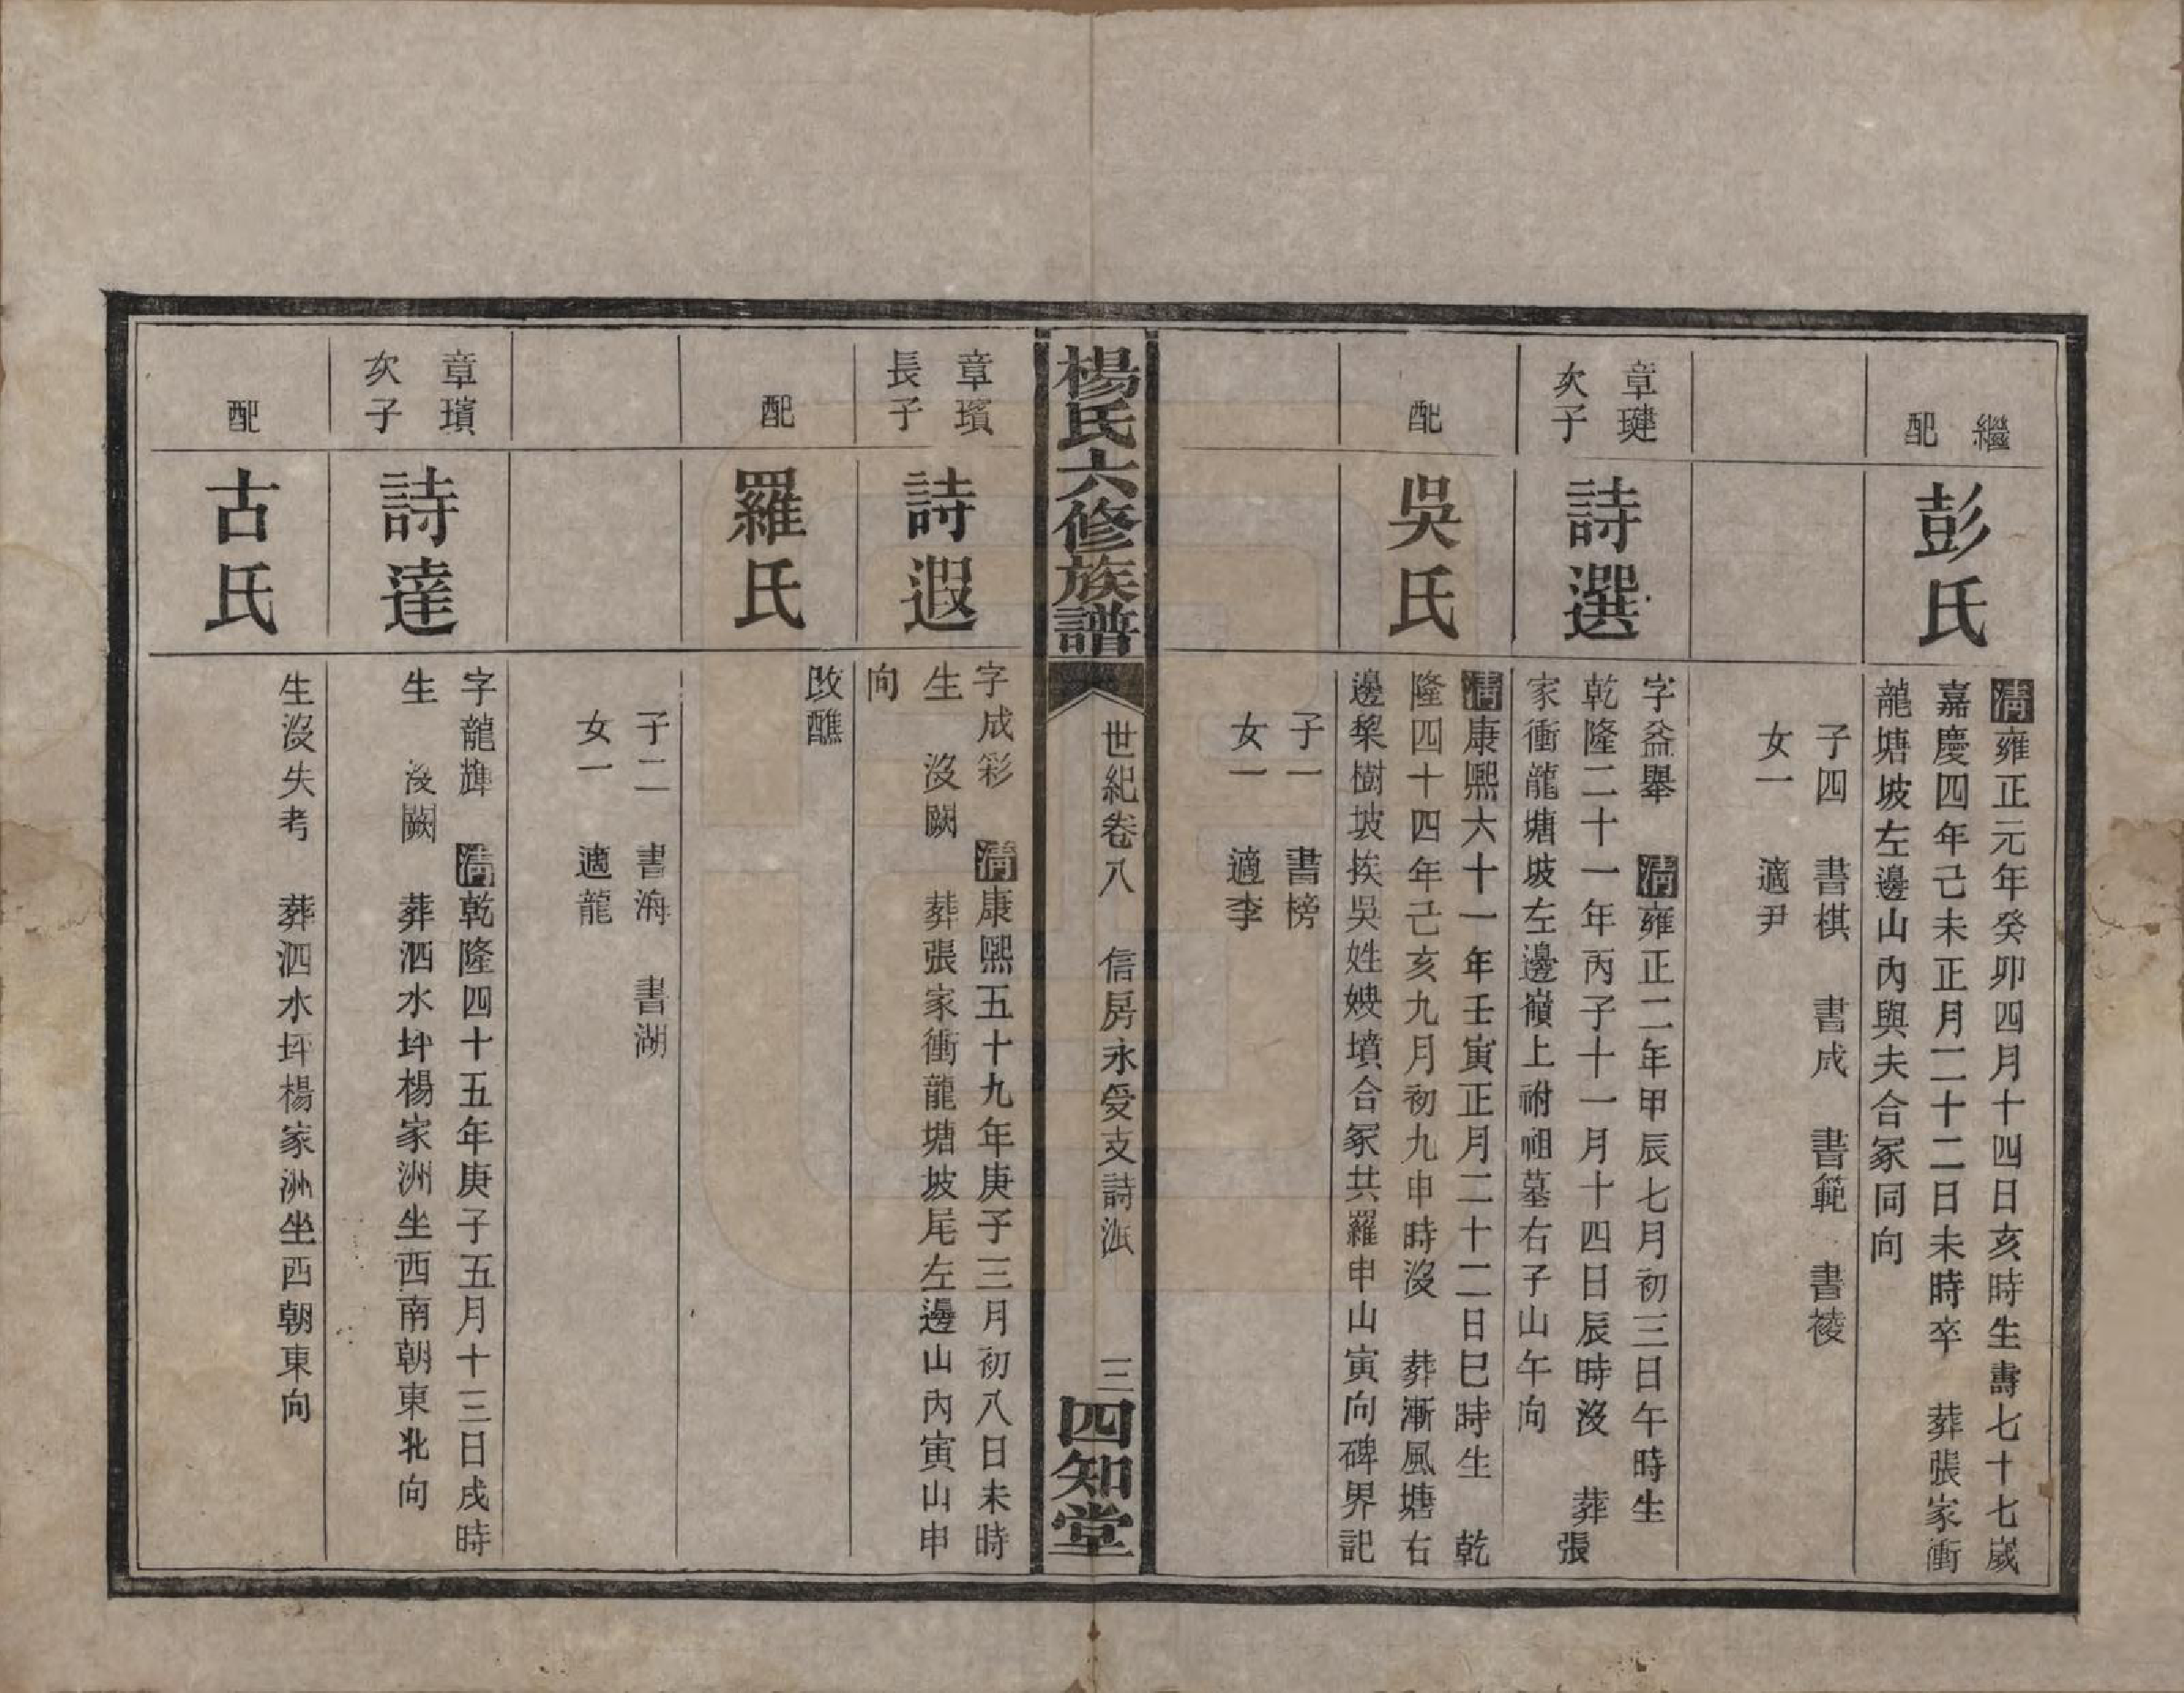 繼
配
彭氏
清雍正元年癸卯四月十四日亥時生壽七十七歲
嘉慶四年己未正月二十二日未時卒　葬張家衝
龍塘坡左邊山內與夫合冢同向
子四　書棋　書成　書範　書稜
女一　適尹
章璉
次子
詩選
字益舉　清雍正二年甲辰七月初三日午時生
乾隆二十一年丙子十一月十四日辰時沒　葬張
家衝龍塘坡左邊嶺上祔祖墓右子山午向
配
吳氏
清康熙六十一年壬寅正月二十二日巳時生　乾
隆四十四年己亥九月初九申時沒　葬漸風塘右
邊棃樹坡挨吳姓媖墳合冢共羅申山寅向碑界記
子一　書榜
女一　適李
楊氏六修族譜
世紀卷八　信房永受支詩派　三
四知堂
章璸
長子
詩遐
字成彩　清康熙五十九年庚子三月初八日未時
生　沒闕　葬張家衝龍塘坡尾左邊山內寅山申
向
配
羅氏
改醮
子二　書海　書湖
女一　適龍
章璸
次子
詩達
字龍　清乾隆四十五年庚子五月十三日戌時
生　沒闕　葬泗水坪楊家洲坐西南朝東北向
配
古氏
生沒失考　葬泗水坪楊家洲坐西朝東向